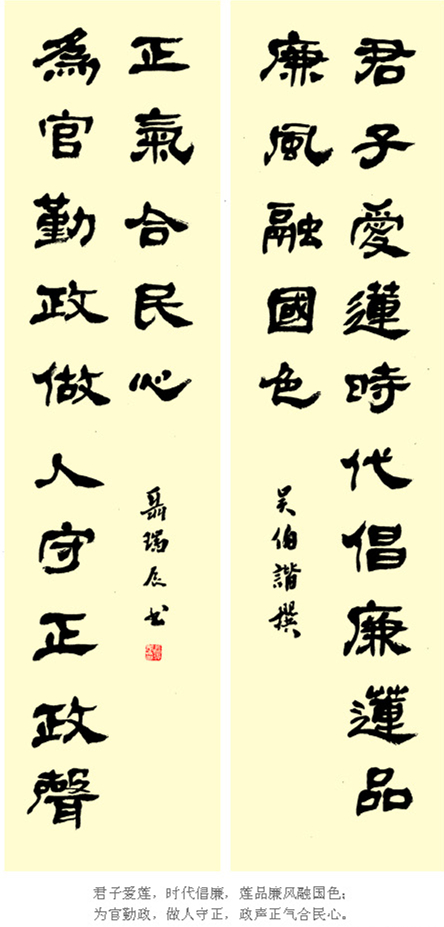 君子愛蓮時代倡廉蓮品
廉風融國色
吴伯諧撰
為官勤政做人守正政聲
正氣合民心
聶瑞辰书
君子爱莲，时代倡廉，莲品廉风融国色；
为官勤政，做人守正，政声正气合民心。